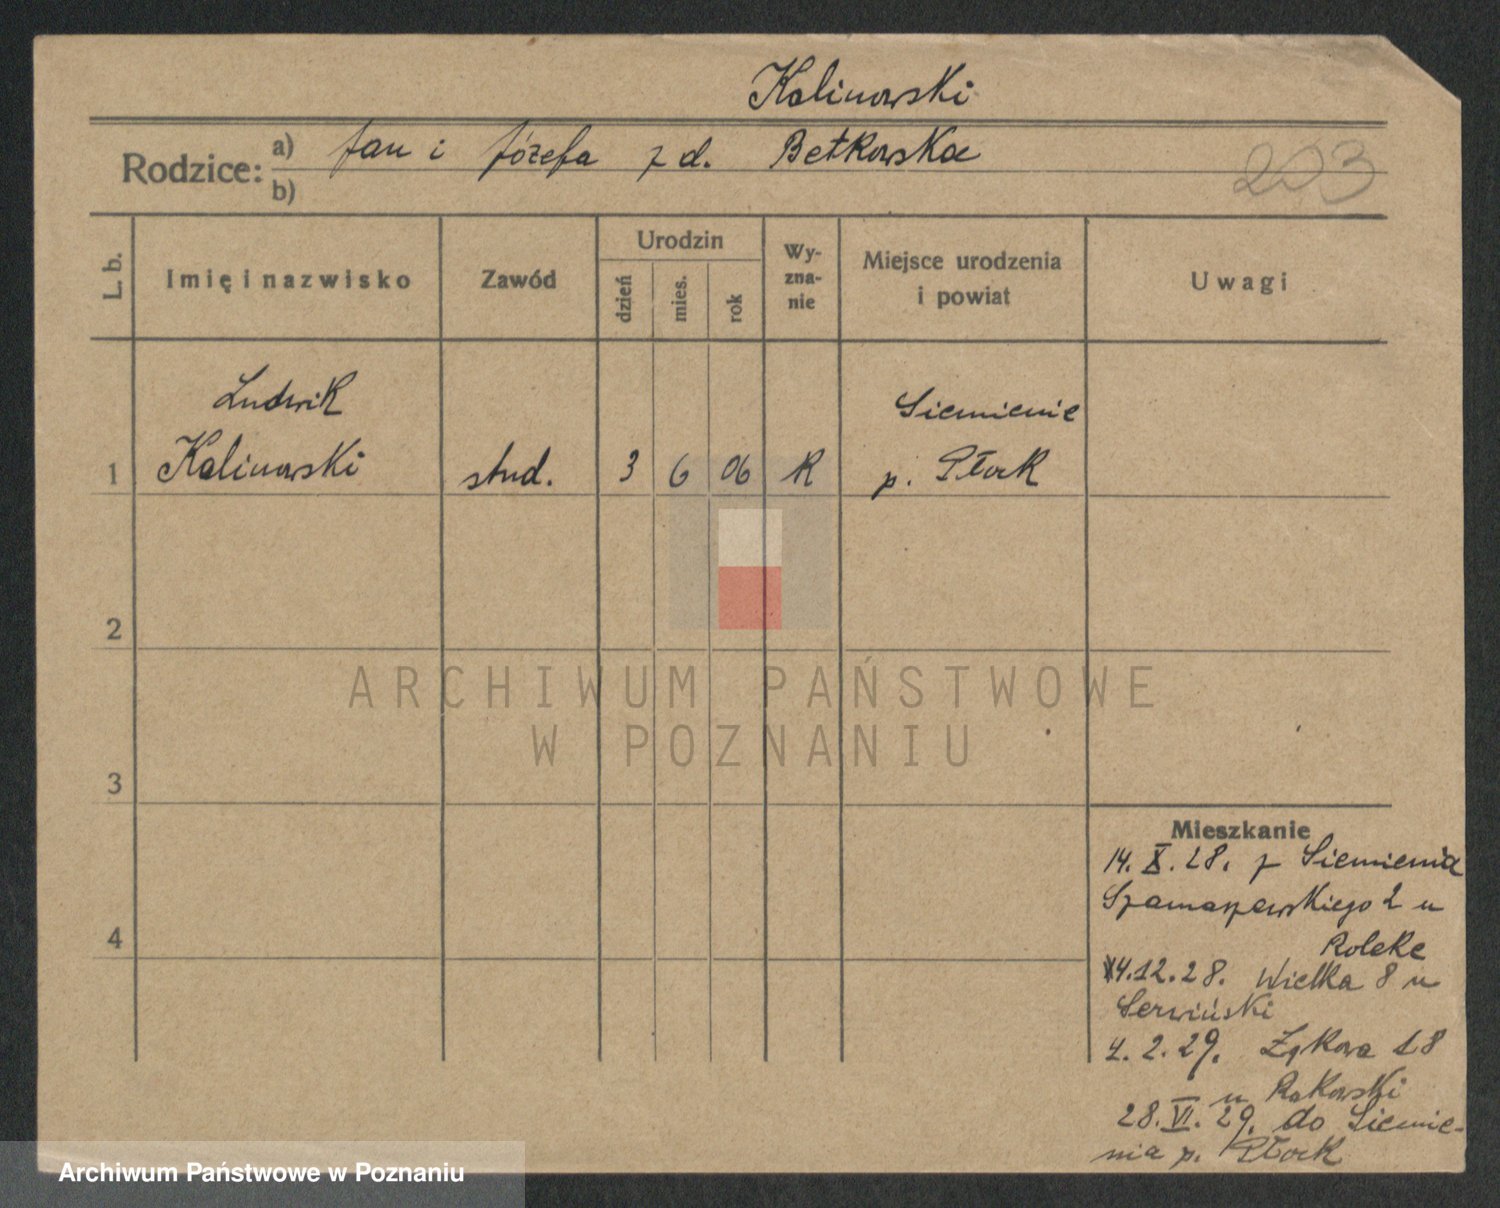 Kalinowski
Rodzice: a) Jan i Józefa z d. Betkowska
b)
203
L. b.
Imię i nazwisko
Zawód
Urodzin
dzień
mies.
rok
Wy-
zna-
nie
Miejsce urodzenia
i powiat
Uwagi
Ludwik Siemienie
1 Kalinowski stud. 3 6 06 R p. Płock
2
ARCHIWUM PAŃSTWOWE
W POZNANIU
3
Mieszkanie
14. X. 28. z Siemienia
Szamarzewskiego 2 u
4
Roleke
4.12.28. Wielka 8 u
Serwiński
4. 2. 29. Łąkowa 18
u Rakowski
28. VI. 29. do Siemie-
nia p. Płock
Archiwum Państwowe w Poznaniu